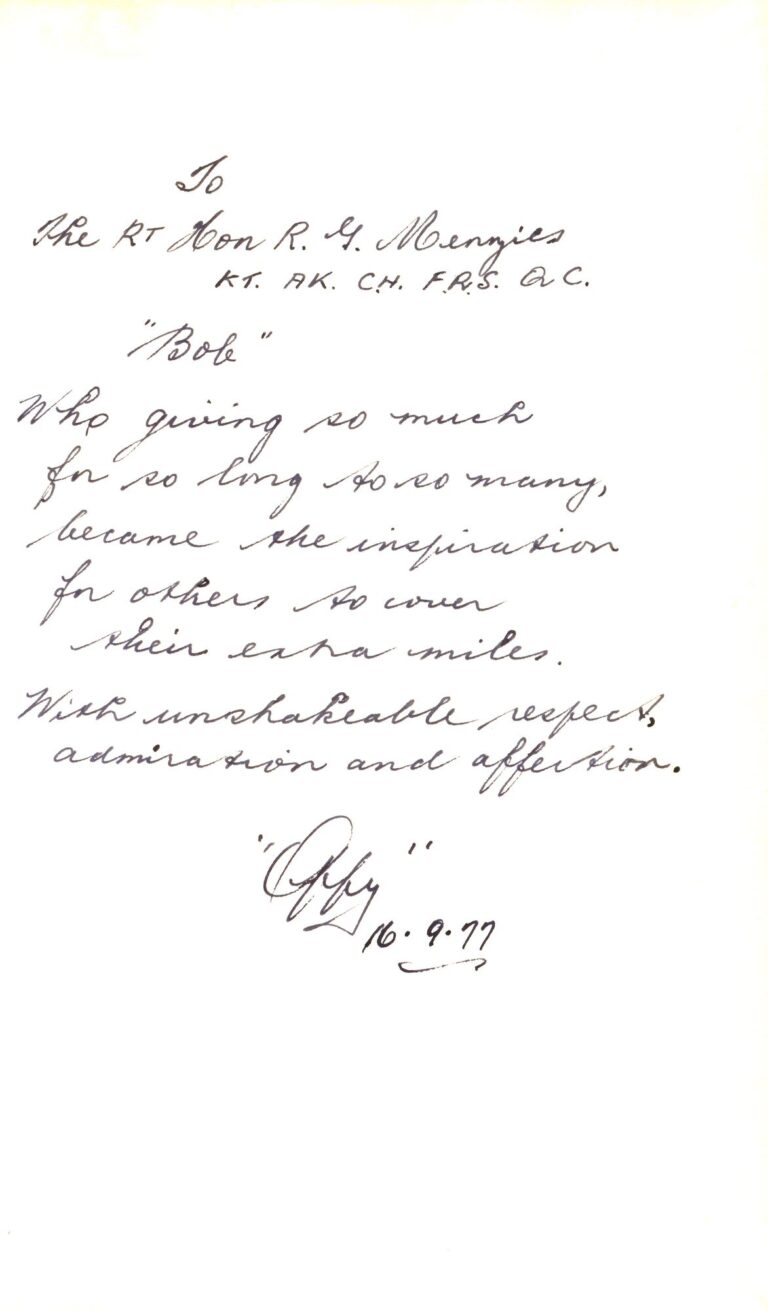 To
The RT Hon R. G. Menzies
KT. AK. C.H. F.R.S. Q C.
"Bob"
Who giving so much
for so long to so many,
became the inspiration
for others to cover
their extra miles.
With unshakeable respect,
admiration and affection.
"Oppy"
16.9.77